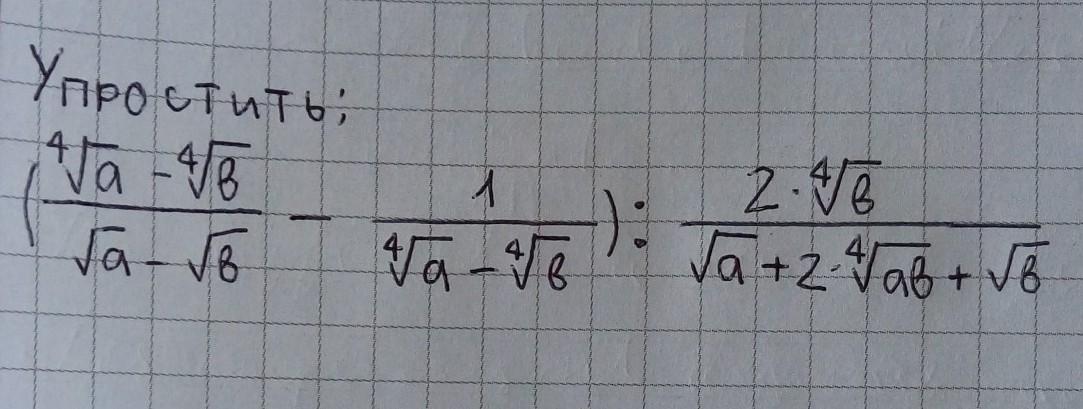 Упростить;
(⁴√a - ⁴√в / √a - √в - 1 / ⁴√a - ⁴√в) : 2·⁴√в / √a + 2·⁴√aв + √в